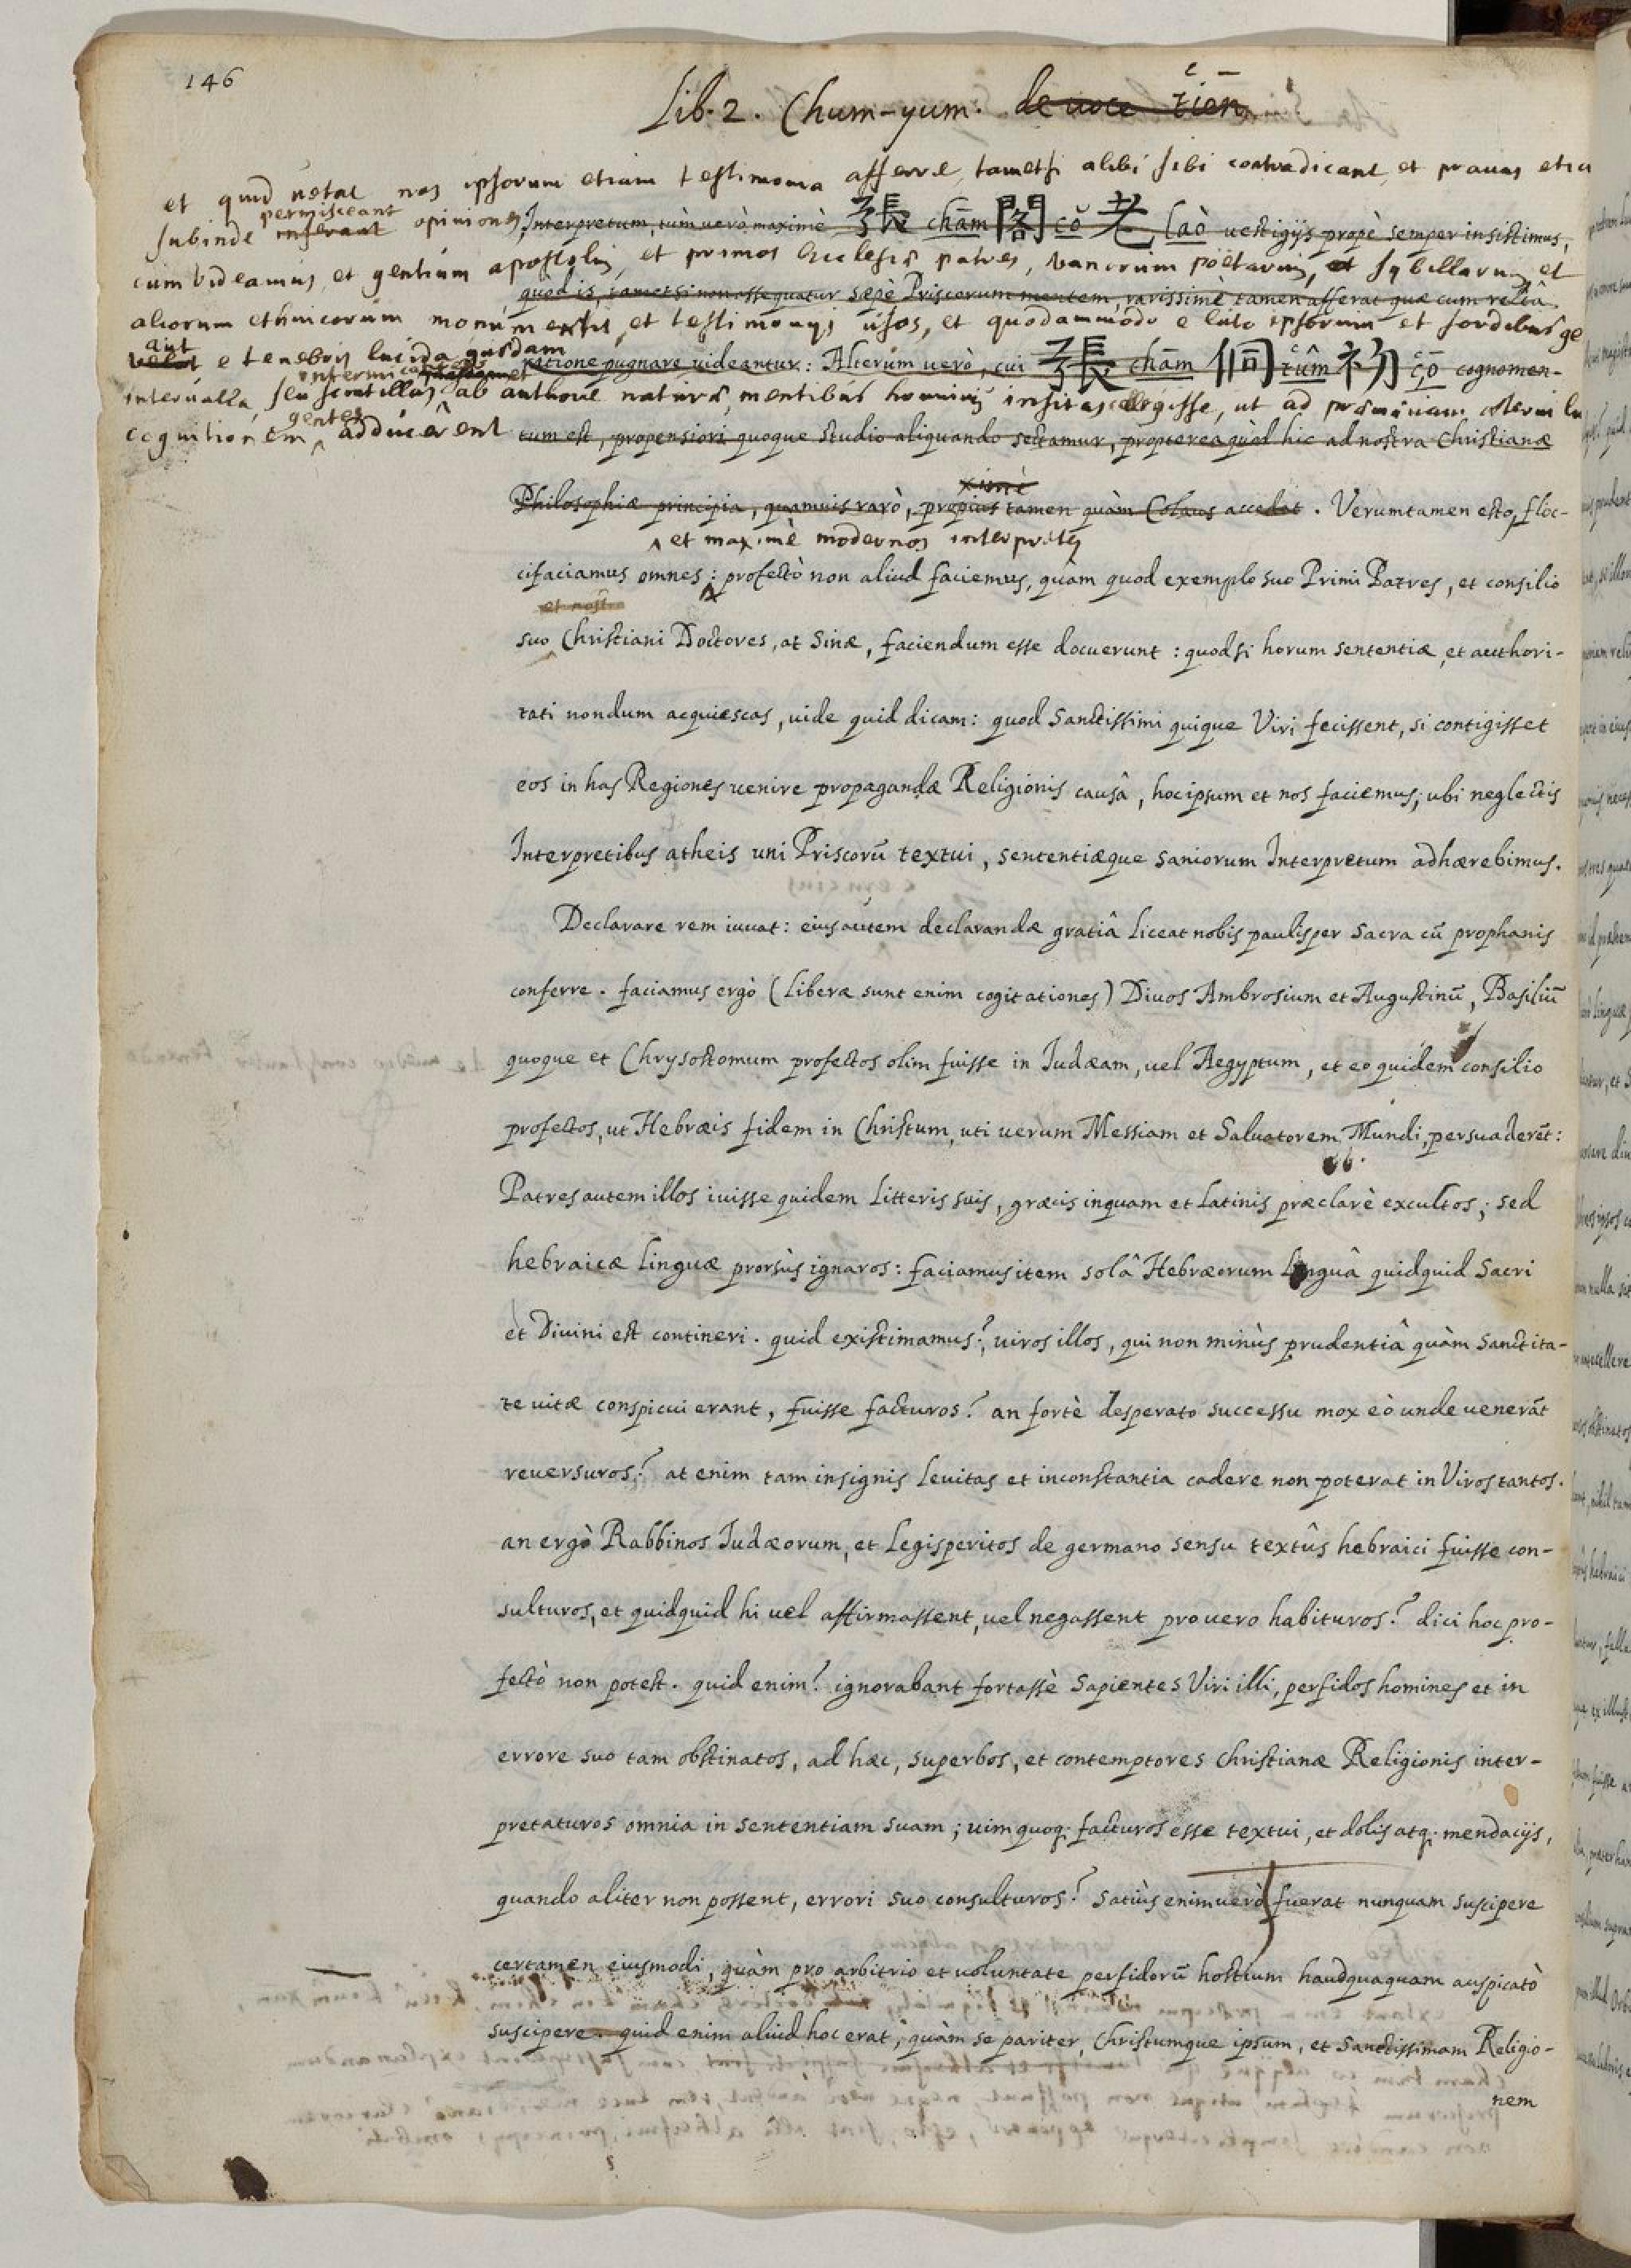 146
Lib. 2. Chum-yum. de uoce tien
et quid uetat nos ipsorum etiam testimonia afferre, tametsi alibi sibi contradicant, et prauas etia
subinde permisceant inserant opiniones,
Interpretum, tùm uerò maximè 張 chām 閣 cŏ 老 laò uestigijs propè semper insistimus,
cum uideamus, et gentium apostolum, et primos Ecclesiæ patres, uanorum poëtarum, et sybillarum, et
quod is, tametsi non assequatur sæpè Priscorum mentem, rarissimè tamen afferat quæ cum rectâ
aliorum ethnicorum monumentis, et testimonijs usos, et quodammodo e luto ipsorum et sordibus ge
aut uelut e tenebris lucida quædam
ratione pugnare uideantur: Alterum uerò, cui 張 chām 侗 tûm 初 çō cognomen-
interualla, seu scintillas ab authore naturæ, mentibus hominum insitas
cognitionem gentes adducerent
tum est, propensiori quoque studio aliquando sectamur, proptereaquòd hic ad nostra Christianæ
Philosophiæ principia, quamuis rarò, propius tamen quàm Colaus accedat. Verumtamen esto, floc-
et maximè modernos interpretes
cifaciamus omnes: profectò non aliud faciemus, quàm quod exemplo suo Primi Patres, et consilio
suo Christiani Doctores, at Sinæ, faciendum esse docuerunt: quodsi horum sententiæ, et authori-
tati nondum acquiescas, uide quid dicam: quod Sanctissimi quique Viri fecissent, si contigisset
eos in has Regiones uenire propagandæ Religionis causâ, hoc ipsum et nos faciemus; ubi neglectis
Interpretibus atheis uni Priscorũ textui, sententiæque saniorum Interpretum adhærebimus.
Declarare rem iuuat: eius autem declarandæ gratiâ liceat nobis paulisper Sacra cũ prophanis
conferre. faciamus ergò (liberæ sunt enim cogitationes) Diuos Ambrosium et Augustinũ, Basiliũ
quoque et Chrysostomum profectos olim fuisse in Iudæam, uel Aegyptum, et eo quidem consilio
profectos, ut Hebræis fidem in Christum, uti uerum Messiam et Saluatorem Mundi, persuaderẽt:
Patres autem illos iuisse quidem litteris suis, græcis inquam et latinis præclarè excultos; sed
hebraicæ linguæ prorsùs ignaros: faciamus item solâ Hebræorum linguâ quidquid Sacri
et Diuini est contineri. quid existimamus?, uiros illos, qui non minùs prudentiâ quàm Sanctita-
te uitæ conspicui erant, fuisse facturos? an fortè desperato successu mox eò unde uenerãt
reuersuros? at enim tam insignis leuitas et inconstantia cadere non poterat in Viros tantos.
an ergò Rabbinos Iudæorum, et legisperitos de germano sensu textûs hebraici fuisse con-
sulturos, et quidquid hi uel affirmassent, uel negassent pro uero habituros? dici hoc pro-
fectò non potest. quid enim? ignorabant fortassè Sapientes Viri illi, perfidos homines et in
errore suo tam obstinatos, ad hæc, superbos, et contemptores Christianæ Religionis inter-
pretaturos omnia in sententiam suam; uim quoq; facturos esse textui, et dolis atq; mendacijs,
quando aliter non possent, errori suo consulturos? Satiùs enimuerò fuerat nunquam suscipere
certamen eiusmodi, quàm pro arbitrio et uoluntate perfidorũ hostium haudquaquam auspicatò
suscipere. quid enim aliud hoc erat, quàm se pariter, Christumque ipsum, et Sanctissimam Religio-
nem